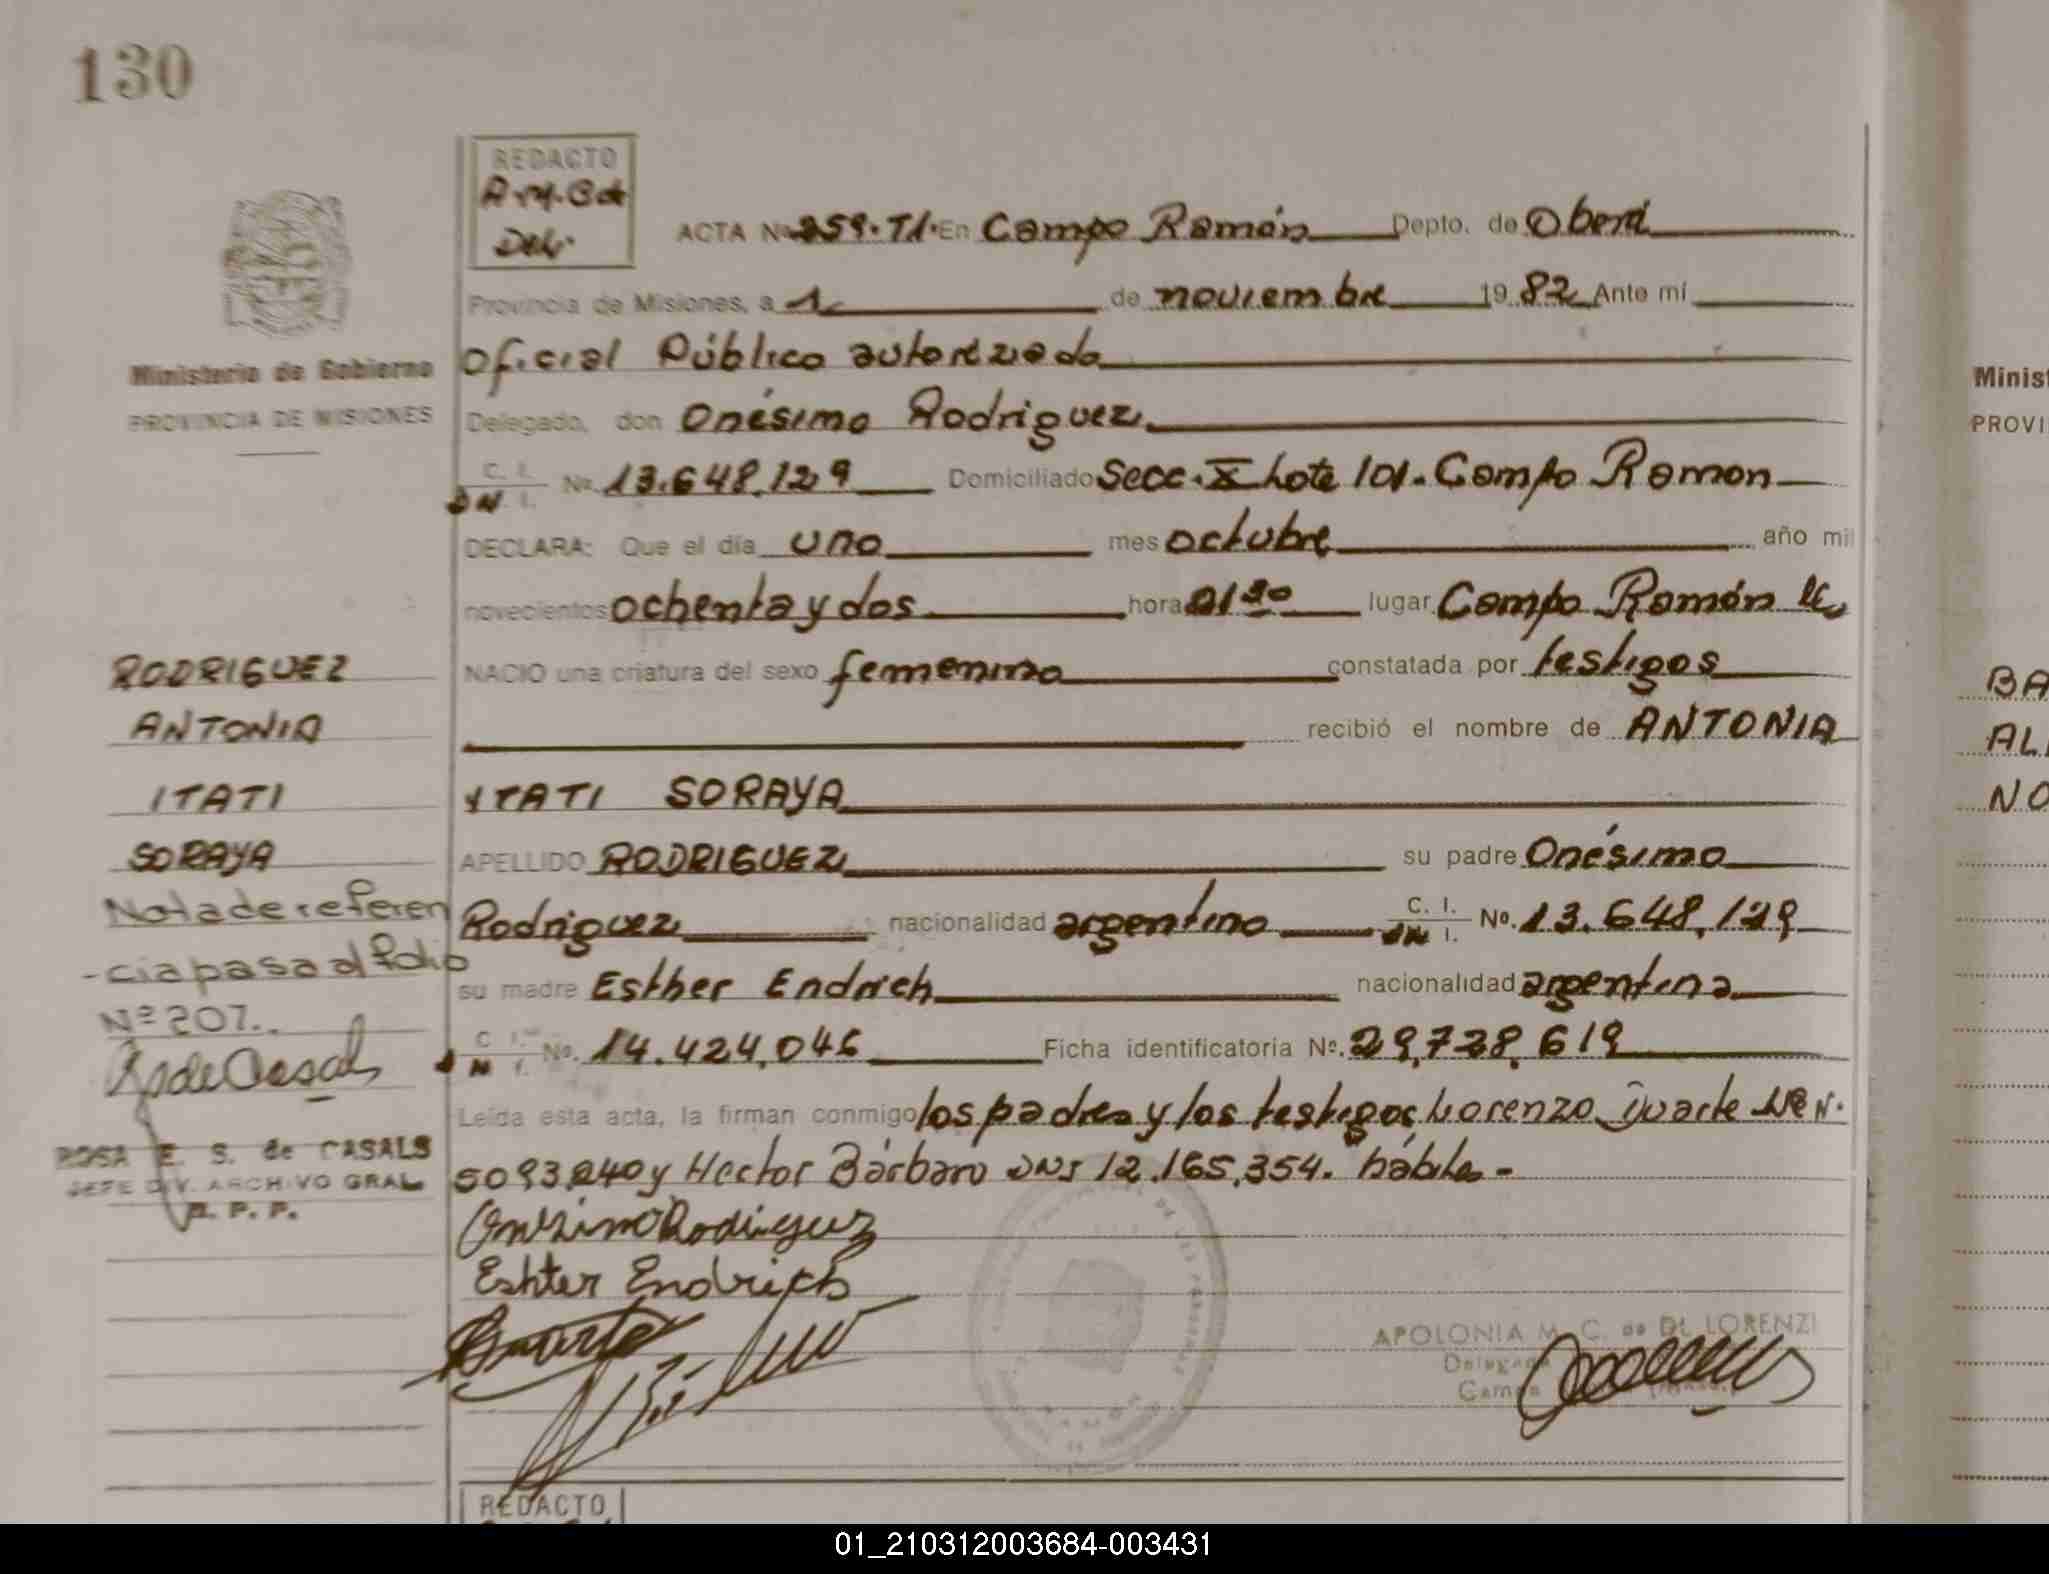 130
REDACTO
ACTA Nº 259. T1. En Campo Ramón Depto. de Oberá
Provincia de Misiones, a 1 de noviembre 1982 Ante mí
Oficial Público autorizado
Ministerio de Gobierno
PROVINCIA DE MISIONES
Delegado, don Onésimo Rodriguez
C. I. DN I. Nº. 13.648.129 Domiciliado Secc. X Lote 101. Campo Ramon
DECLARA: Que el día uno mes octubre año mil
novecientos ochenta y dos hora lugar Campo Ramón
NACIO una criatura del sexo femenino constatada por testigos
recibió el nombre de ANTONIA
ITATI SORAYA
APELLIDO RODRIGUEZ su padre Onésimo
Rodriguez nacionalidad argentino C. I. DN I. Nº. 13.648.129
su madre Esther Endrich nacionalidad argentina
C I. DN I. Nº. 14.424.046 Ficha identificatoria Nº. 29.728.619
Leída esta acta, la firman conmigo los padres y los testigos Lorenzo Duarte
5093.240 y Hector Bárbaro DNI 12.165.354. hábiles -
RODRIGUEZ
ANTONIA
ITATI
SORAYA
Nota de referen
-cia pasa al folio
Nº 207.
ROSA E. S. de CASALS
JEFE DIV. ARCHIVO GRAL
R. P. P.
Onesimo Rodriguez
Eshter Endrich
APOLONIA M. C. de DI LORENZI
Delegada
REDACTO
Minist
PROVI
BA
AL
NO
01_210312003684-003431